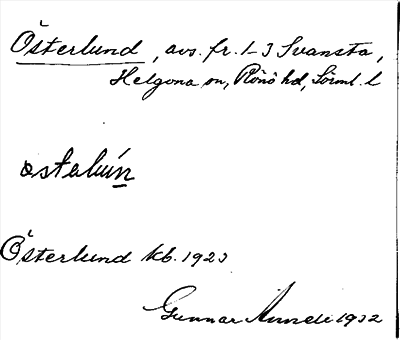 Österlund, avs. fr. L 3 Svansta,
Helgona sn, Rönö hd, Sörml. l
Österlund kb. 1923
Gunnar 1932